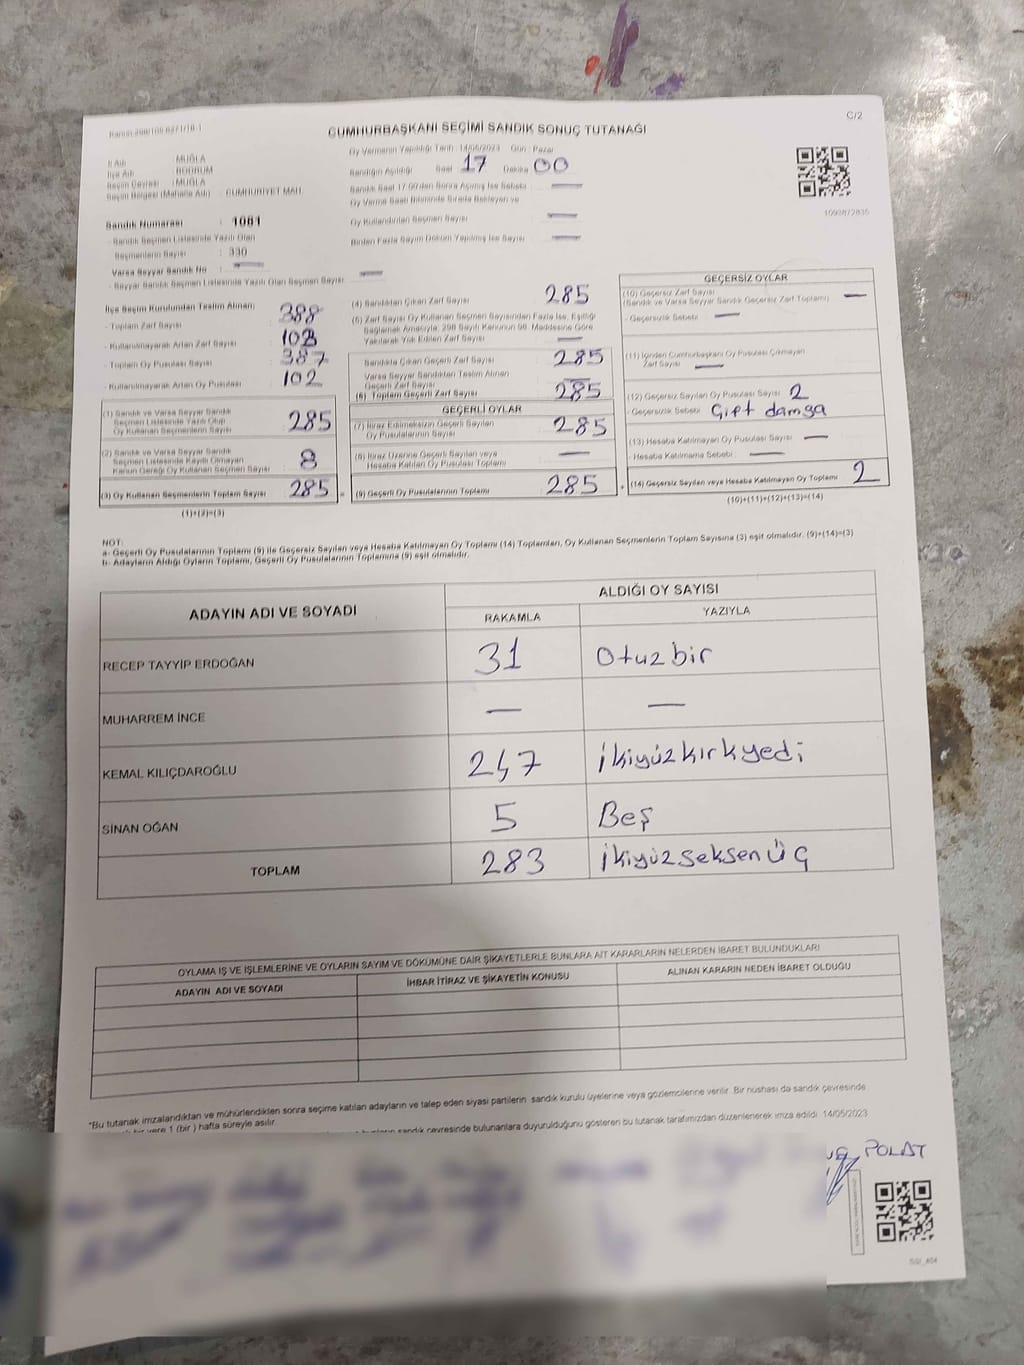 C/2
CUMHURBAŞKANI SEÇİMİ SANDIK SONUÇ TUTANAĞI
İl Adı : MUĞLA
İlçe Adı : BODRUM
Seçim Çevresi : MUĞLA
Seçim Bölgesi (Mahalle Adı) : CUMHURİYET MAH.
Oy Vermenin Yapıldığı Tarih : 14/05/2023 Gün : Pazar
Sandığın Açıldığı Saat 17 Dakika 00
Sandık Saat 17.00'den Sonra Açılmış İse Sebebi : —
Oy Verme Saati Bitiminde Sırada Bekleyen ve
Oy Kullandırılan Seçmen Sayısı : —
Birden Fazla Sayım Döküm Yapılmış İse Sayısı : —
1093872835
Sandık Numarası : 1081
- Sandık Seçmen Listesinde Yazılı Olan
Seçmenlerin Sayısı : 330
Varsa Seyyar Sandık No : —
- Seyyar Sandık Seçmen Listesinde Yazılı Olan Seçmen Sayısı : —
İlçe Seçim Kurulundan Teslim Alınan;
- Toplam Zarf Sayısı 388
- Kullanılmayarak Artan Zarf Sayısı 103
- Toplam Oy Pusulası Sayısı 387
- Kullanılmayarak Artan Oy Pusulası 102
(1) Sandık ve Varsa Seyyar Sandık
Seçmen Listesinde Yazılı Olup
Oy Kullanan Seçmenlerin Sayısı 285
(2) Sandık ve Varsa Seyyar Sandık
Seçmen Listesinde Kayıtlı Olmayan
Kanun Gereği Oy Kullanan Seçmen Sayısı 8
(3) Oy Kullanan Seçmenlerin Toplam Sayısı 285
(1)+(2)=(3)
(4) Sandıktan Çıkan Zarf Sayısı 285
(5) Zarf Sayısı Oy Kullanan Seçmen Sayısından Fazla İse, Eşitliği
Sağlamak Amacıyla, 298 Sayılı Kanunun 98. Maddesine Göre
Yakılarak Yok Edilen Zarf Sayısı —
Sandıkta Çıkan Geçerli Zarf Sayısı 285
Varsa Seyyar Sandıktan Teslim Alınan
Geçerli Zarf Sayısı —
(6) Toplam Geçerli Zarf Sayısı 285
GEÇERLİ OYLAR
(7) İtiraz Edilmeksizin Geçerli Sayılan
Oy Pusulalarının Sayısı 285
(8) İtiraz Üzerine Geçerli Sayılan veya
Hesaba Katılan Oy Pusulası Toplamı —
(9) Geçerli Oy Pusulalarının Toplamı 285
GEÇERSİZ OYLAR
(10) Geçersiz Zarf Sayısı
(Sandık ve Varsa Seyyar Sandık Geçersiz Zarf Toplamı) —
- Geçersizlik Sebebi: —
(11) İçinden Cumhurbaşkanı Oy Pusulası Çıkmayan
Zarf Sayısı —
(12) Geçersiz Sayılan Oy Pusulası Sayısı 2
- Geçersizlik Sebebi: Çift damga
(13) Hesaba Katılmayan Oy Pusulası Sayısı —
- Hesaba Katılmama Sebebi : —
(14) Geçersiz Sayılan veya Hesaba Katılmayan Oy Toplamı 2
(10)+(11)+(12)+(13)=(14)
NOT:
a- Geçerli Oy Pusulalarının Toplamı (9) ile Geçersiz Sayılan veya Hesaba Katılmayan Oy Toplamı (14) Toplamları, Oy Kullanan Seçmenlerin Toplam Sayısına (3) eşit olmalıdır. (9)+(14)=(3)
b- Adayların Aldığı Oyların Toplamı, Geçerli Oy Pusulalarının Toplamına (9) eşit olmalıdır.
ADAYIN ADI VE SOYADI
ALDIĞI OY SAYISI
RAKAMLA YAZIYLA
RECEP TAYYİP ERDOĞAN 31 Otuzbir
MUHARREM İNCE — —
KEMAL KILIÇDAROĞLU 247 İkiyüzkırkyedi
SİNAN OĞAN 5 Beş
TOPLAM 283 İkiyüzseksenüç
OYLAMA İŞ VE İŞLEMLERİNE VE OYLARIN SAYIM VE DÖKÜMÜNE DAİR ŞİKAYETLERLE BUNLARA AİT KARARLARIN NELERDEN İBARET BULUNDUKLARI
ADAYIN ADI VE SOYADI İHBAR İTİRAZ VE ŞİKAYETİN KONUSU ALINAN KARARIN NEDEN İBARET OLDUĞU
*Bu tutanak imzalandıktan ve mühürlendikten sonra seçime katılan adayların ve talep eden siyasi partilerin sandık kurulu üyelerine veya gözlemcilerine verilir. Bir nüshası da sandık çevresinde
bir yere 1 (bir ) hafta süreyle asılır.
sandık çevresinde bulunanlara duyurulduğunu gösteren bu tutanak tarafımızdan düzenlenerek imza edildi. 14/05/2023
POLAT